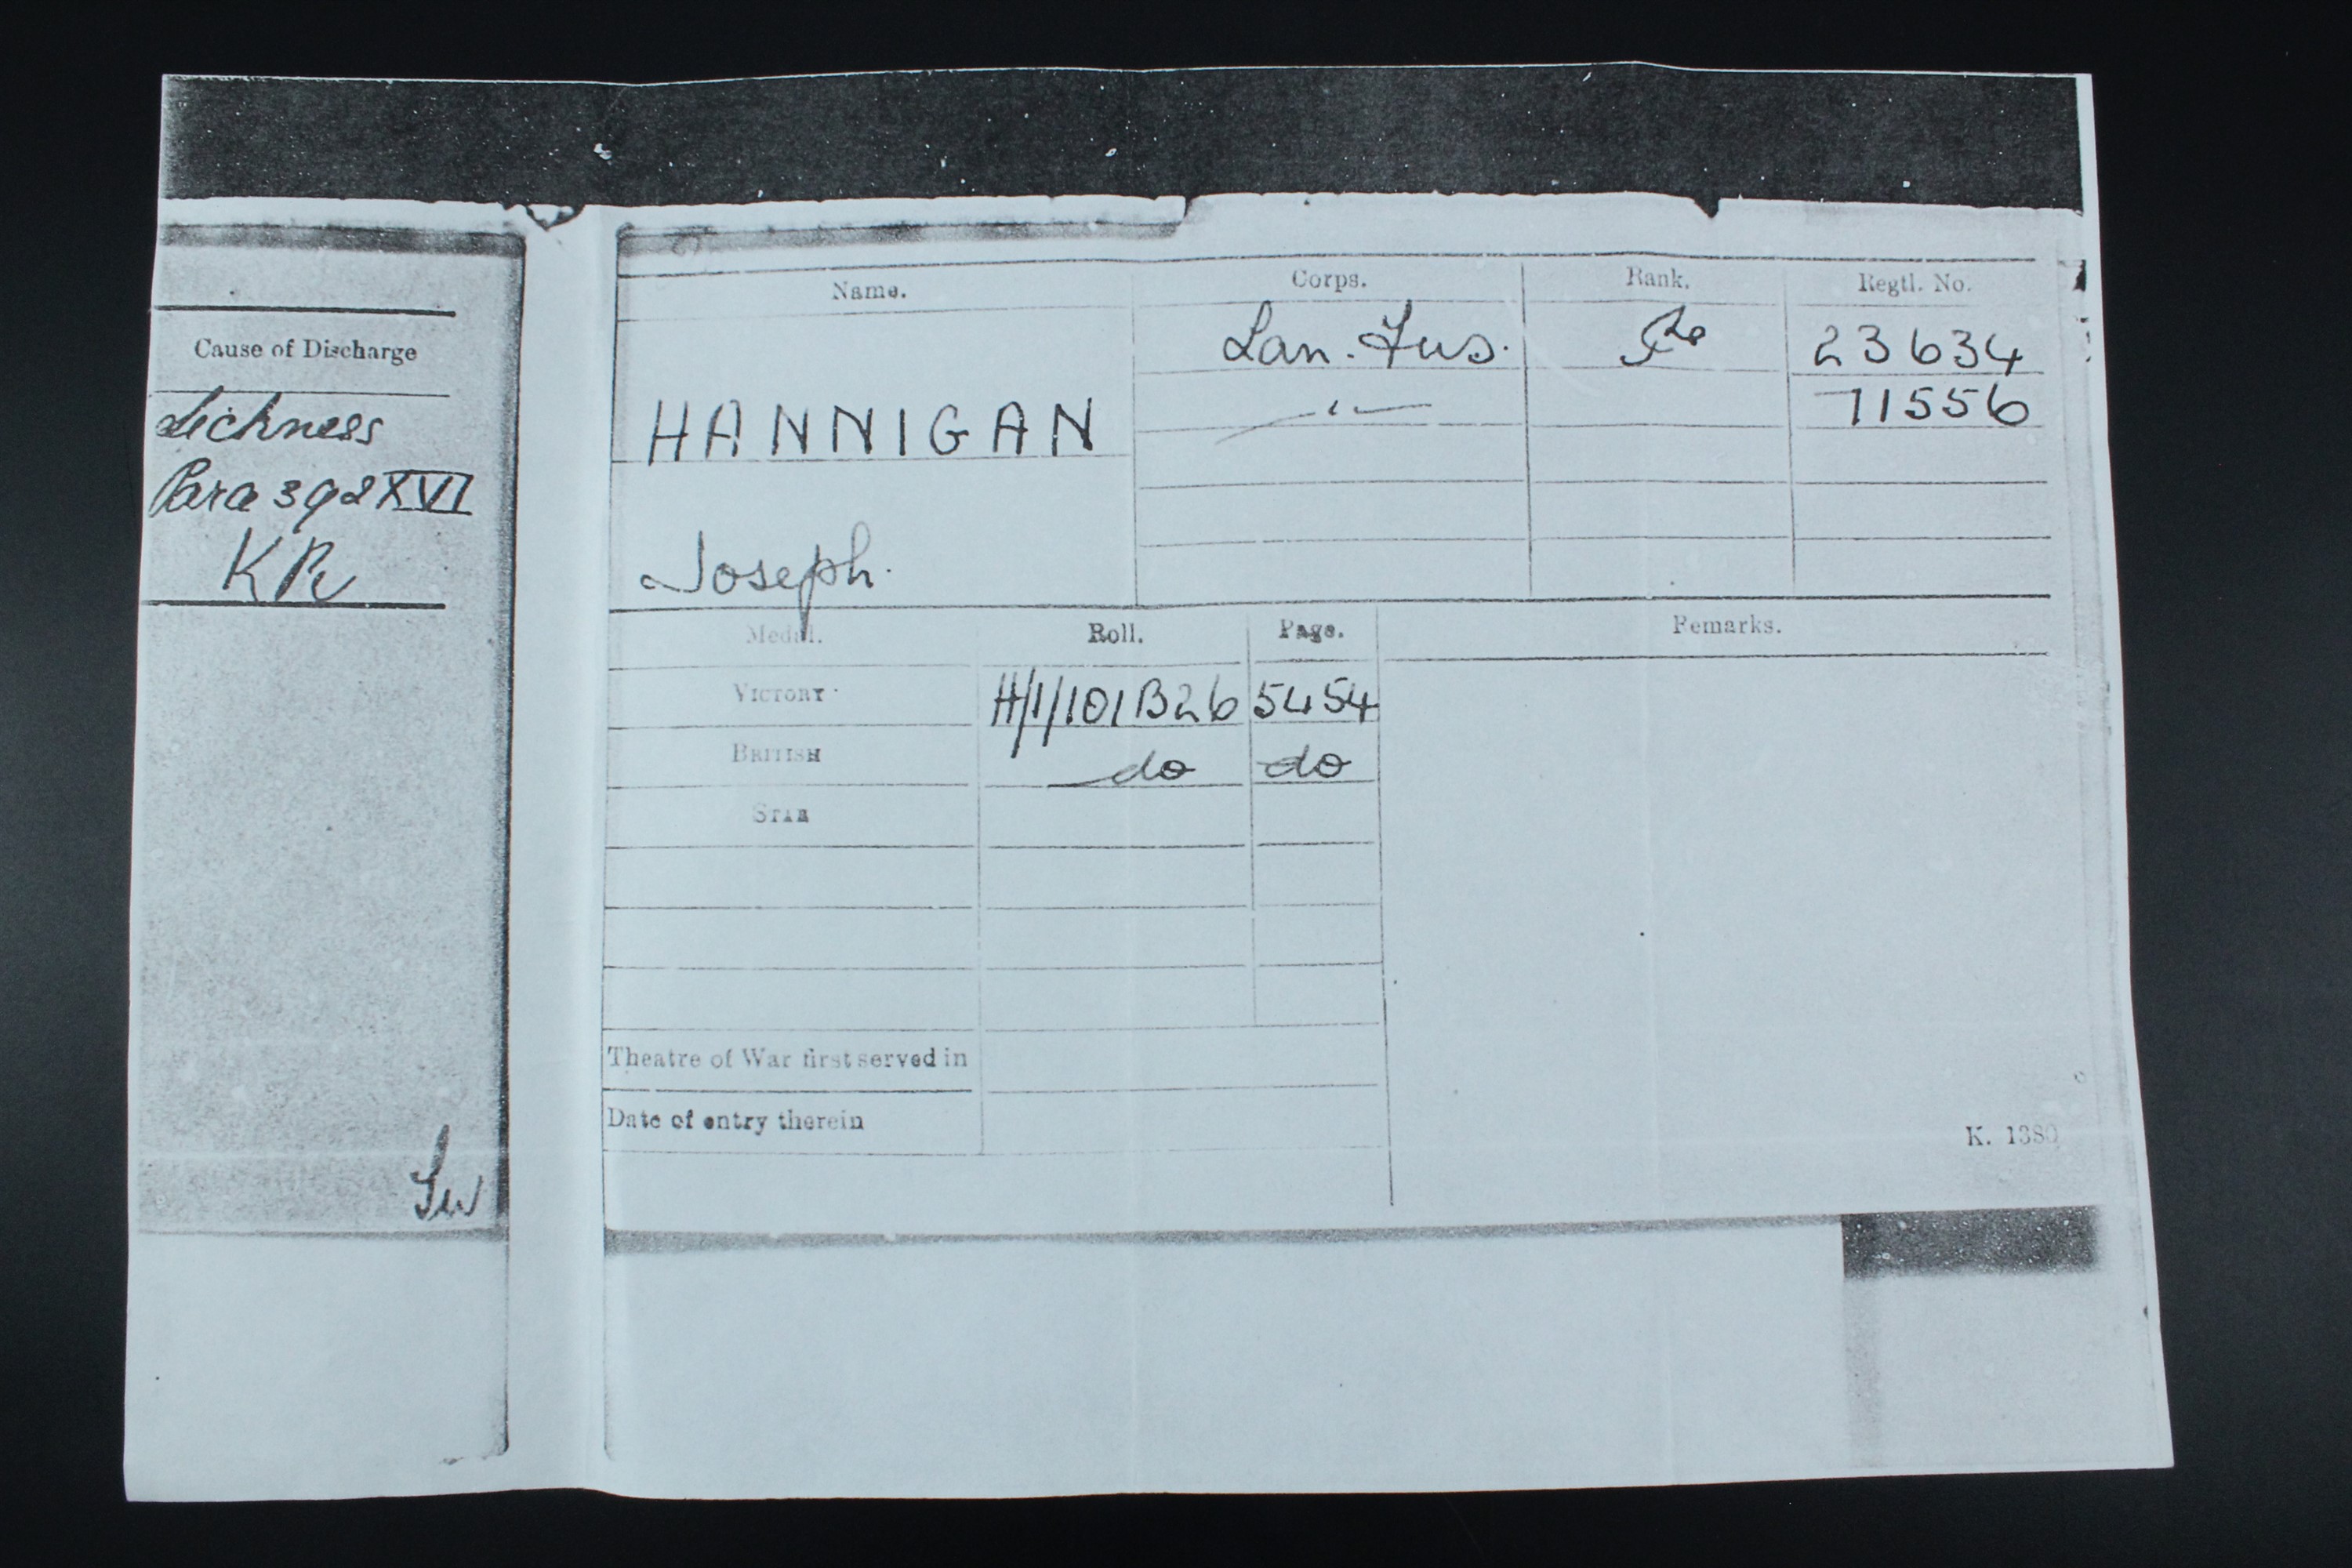 Cause of Discharge
Sickness
Para 392 XVI
KR
Name. Corps. Rank. Regtl. No.
Lan. Fus. Pte 23634
HANNIGAN —"— 71556
Joseph.
Medal. Roll. Page. Remarks.
VICTORY H/1/101B26 5454
BRITISH do do
STAR
Theatre of War first served in
Date of entry therein
K. 1380